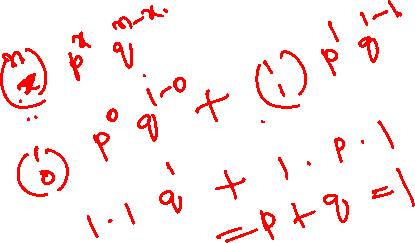 (n x) p^x q^{n-x}.
(1 0) p^0 q^{1-0} + (1 1) p^1 q^{1-1}
1 . 1 q^1 + 1 . p . 1
= p + q = 1